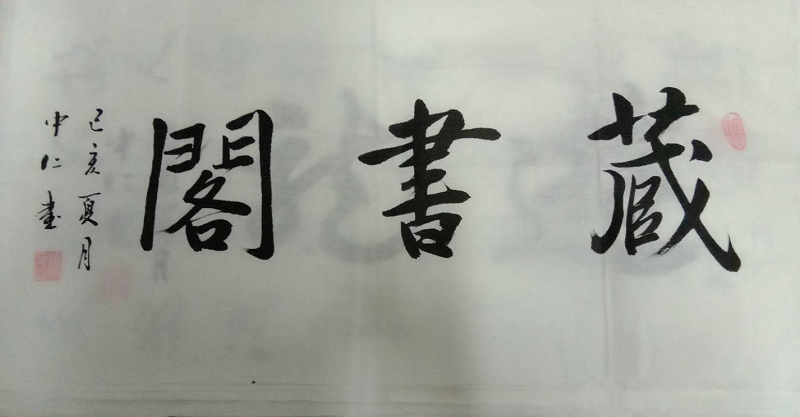 藏書閣
己亥夏月
中仁書